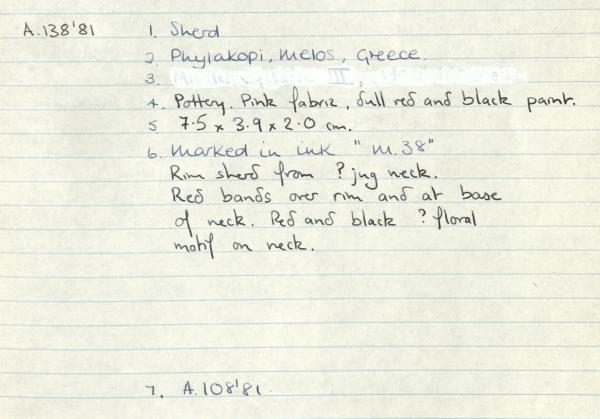 A.138'81
1. Sherd
2. Phylakopi, Melos, Greece.
3. III,
4. Pottery. Pink fabric, dull red and black paint.
5 7.5 x 3.9 x 2.0 cm.
6. Marked in ink "M.38"
Rim sherd from ? jug neck.
Red bands over rim and at base
of neck. Red and black ? floral
motif on neck.
7. A.108'81.